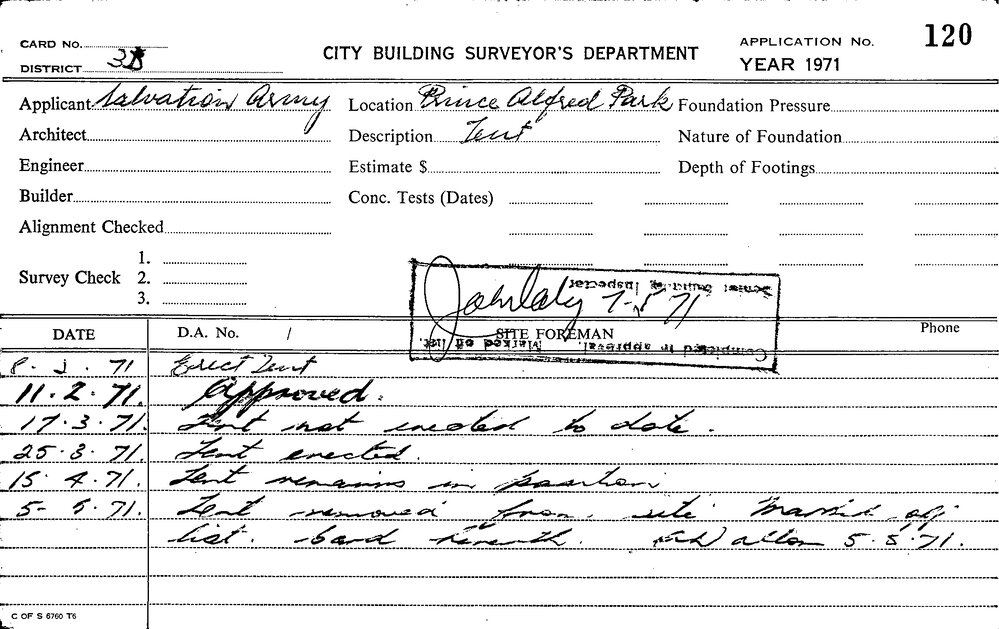 CARD No.
DISTRICT 3B
CITY BUILDING SURVEYOR'S DEPARTMENT
APPLICATION No. 120
YEAR 1971
Applicant Salvation Army Location Prince Alfred Park Foundation Pressure
Architect Description Tent Nature of Foundation
Engineer Estimate $ Depth of Footings
Builder Conc. Tests (Dates)
Alignment Checked
Survey Check 1.
2.
3.
Senior Building Inspector
7-5-71
DATE D.A. No. / SITE FOREMAN Phone
Completed in approval. Marked off list.
8. 2. 71 Erect Tent
11.2.71. Approved.
17.3.71. Tent not erected to date.
25.3.71. Tent erected.
15.4.71. Tent remains in position
5-5.71. Tent removed from site Marked off
list. card herewith. 5.5.71.
C OF S 6760 T6